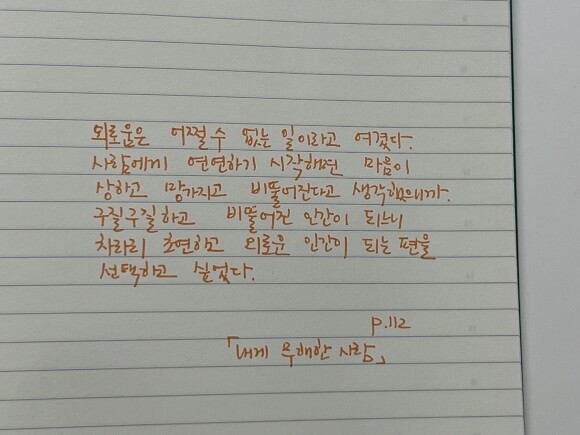 외로움은 어쩔 수 없는 일이라고 여겼다.
사람에게 연연하기 시작하면 마음이
상하고 망가지고 비뚤어진다고 생각했으니까.
구질구질하고 비뚤어진 인간이 되느니
차라리 초연하고 외로운 인간이 되는 편을
선택하고 싶었다.
p.112
「내게 무해한 사람」